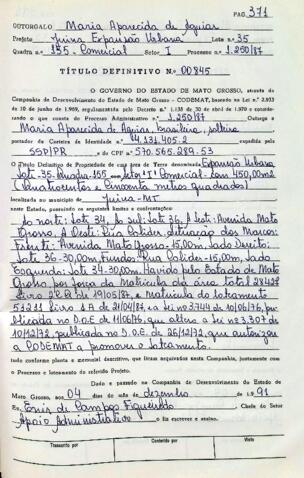 PAG 371
OUTORGALO Maria Aparecida de Aguiar
Projeto Juina Expansão Urbana Lote n.º 35
Quadra n.º 155 - Comercial Setor I Processo n.º 1.250/87
TÍTULO DEFINITIVO N.º 00845
O GOVERNO DO ESTADO DE MATO GROSSO, através da
Companhia de Desenvolvimento do Estado de Mato Grosso - CODEMAT, baseado na Lei n.º 2.933
de 10 de junho de 1969, regulamentada pelo Decreto n.º 1.138 de 30 de abril de 1970 e considerando
o que consta do Processo Administrativo n.º 1.250/87 Outorga a
Maria Aparecida de Aguiar, brasileira, solteira
portador da Carteira de Identidade n.º 4.131.405.2 expedida pela
SSP/PR e do CPF n.º 570.565.289.53
O Título Definitivo de Propriedade de uma área de Terra denominada Expansão Urbana
Lote - 35 - Quadra - 155 - com Setor "I" Comercial - com 450,00m2
(Quatrocentos e Cincoenta metros quadrados)
localizada no município de Juina - MT
neste Estado, passando os seguintes limites e confrontações:
Ao norte: Lote 34, Ao sul: Lote 36, A Leste: Avenida Mato
Grosso. A Oeste: Rua Colider, situação dos Marcos:
Frente: Avenida Mato Grosso - 15,00m, Lado Direito:
Lote 36 - 30,00m, Fundos: Rua Colider - 15,00m, Lado
Esquerdo: Lote 34 - 30,00m. Havido pelo Estado de Mato
Grosso por força da Matricula da área total 28428
livro 22 de 19/05/82, e Matricula do Loteamento
e a Lei nº 3.744 de 10/06/76, pu-
blicada no D.O.E de 11/06/76, que altera a Lei nº 3.307 de
10/12/72, publicada no D.O.E. de 26/12/72, que autorizou
a CODEMAT a promover o Loteamento.
tudo conforme planta e memorial descritivo, que ficam arquivados nesta Companhia, juntamente com
o Processo e loteamento do referido Projeto.
Dado e passado na Companhia de Desenvolvimento do Estado de
Mato Grosso, aos 04 dias do mês de dezembro de 1991
Eu, Enir de Campos Figueiredo Chefe do Setor
Apoio Administrativo o fiz escrever e assino.
Transcrito por Conferido por Visto